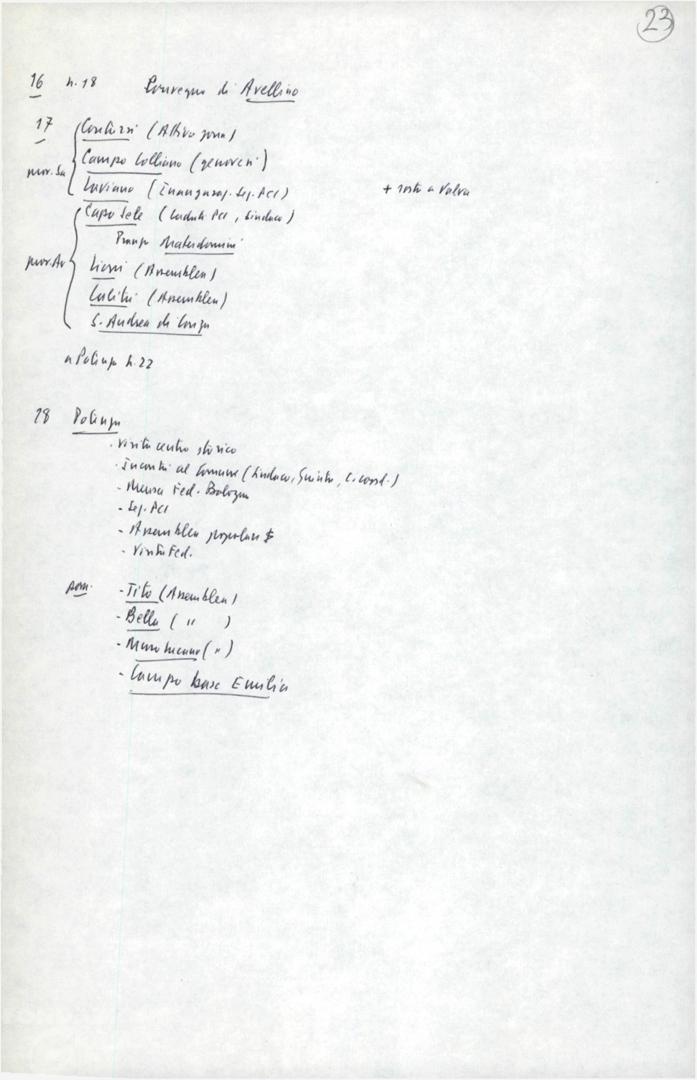 23
16 h. 18 Convegno di Avellino
17 Contursi (Attivo zona)
prov. Sa Campo Colliano (genovesi)
Laviano (Inauguraz. Sez. PCI) + sosta a Valva
Capo Sele (Caduti PCI, Sindaco)
Pranzo Materdomini
prov. Av Lioni (Assemblea)
Calitri (Assemblea)
S. Andrea di Conza
a Potenza h. 22
18 Potenza
- visita centro storico
- Incontri al Comune (Sindaco, Giunta, C. coord.)
- Mensa Fed. Bologna
- Sez. PCI
- Assemblea popolare
- Visita Fed.
pom. - Tito (Assemblea)
- Bella ( " )
- Muro Lucano ( " )
- Campo base Emilia